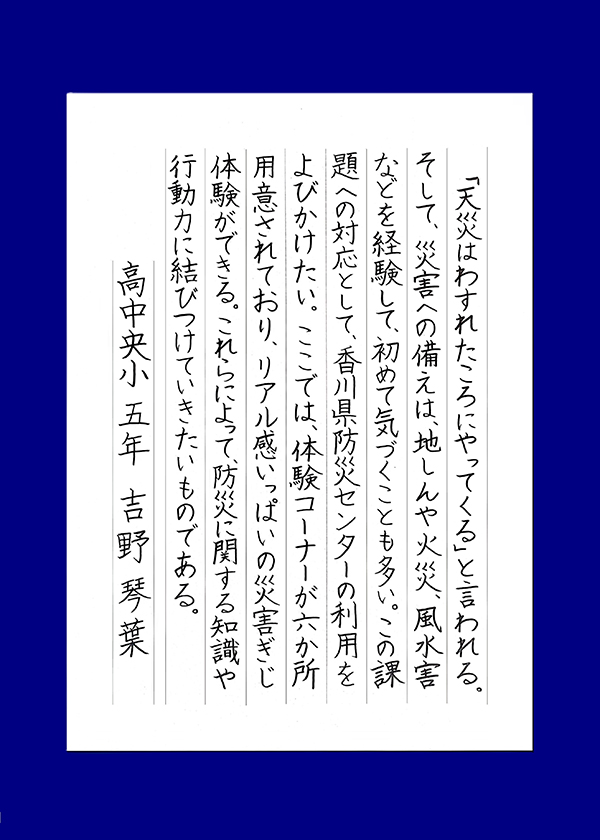 「天災はわすれたころにやってくる」と言われる。
そして、災害への備えは、地しんや火災、風水害
などを経験して、初めて気づくことも多い。この課
題への対応として、香川県防災センターの利用を
よびかけたい。ここでは、体験コーナーが六か所
用意されており、リアル感いっぱいの災害ぎじ
体験ができる。これらによって、防災に関する知識や
行動力に結びつけていきたいものである。
高中央小 五年 吉野琴葉